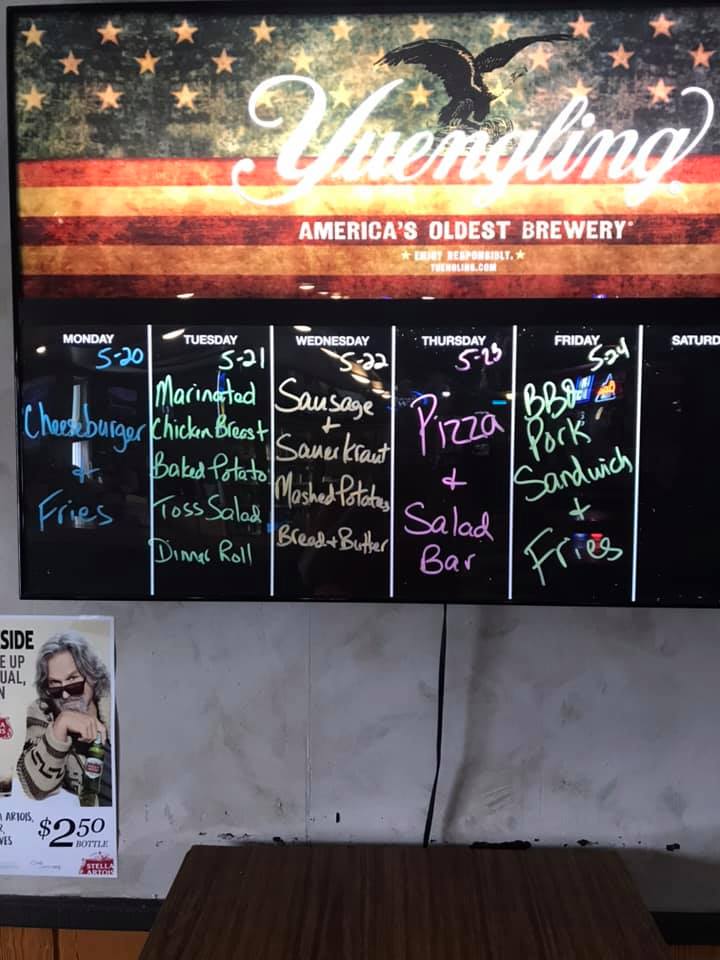 Yuengling
AMERICA'S OLDEST BREWERY
ENJOY RESPONSIBLY.
YUENGLING.COM
MONDAY
5-20
Cheeseburger
+
Fries
TUESDAY
5-21
Marinated
Chicken Breast
Baked Potato
Toss Salad
Dinner Roll
WEDNESDAY
5-22
Sausage
+
Sauerkraut
Mashed Potatoes
Bread + Butter
THURSDAY
5-23
Pizza
+
Salad
Bar
FRIDAY
5-24
BBQ
Pork
Sandwich
+
Fries
SATURD
SIDE
E UP
UAL,
N
ARTOIS,
R,
VES
$2.50
BOTTLE
STELLA
ARTOIS